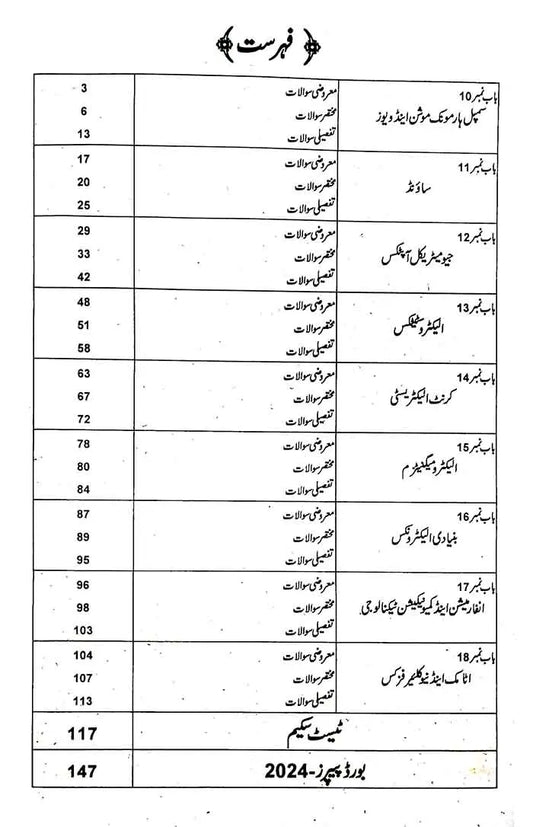 فہرست
باب نمبر 10
سمپل ہارمونک موشن اینڈ ویوز
معروضی سوالات 3
مختصر سوالات 6
تفصیلی سوالات 13
باب نمبر 11
ساؤنڈ
معروضی سوالات 17
مختصر سوالات 20
تفصیلی سوالات 25
باب نمبر 12
جیومیٹریکل آپٹکس
معروضی سوالات 29
مختصر سوالات 33
تفصیلی سوالات 42
باب نمبر 13
الیکٹروسٹیٹکس
معروضی سوالات 48
مختصر سوالات 51
تفصیلی سوالات 58
باب نمبر 14
کرنٹ الیکٹریسٹی
معروضی سوالات 63
مختصر سوالات 67
تفصیلی سوالات 72
باب نمبر 15
الیکٹرومیگنیٹزم
معروضی سوالات 78
مختصر سوالات 80
تفصیلی سوالات 84
باب نمبر 16
بنیادی الیکٹرونکس
معروضی سوالات 87
مختصر سوالات 89
تفصیلی سوالات 95
باب نمبر 17
انفارمیشن اینڈ کمیونیکیشن ٹیکنالوجی
معروضی سوالات 96
مختصر سوالات 98
تفصیلی سوالات 103
باب نمبر 18
اٹامک اینڈ نیوکلیئر فزکس
معروضی سوالات 104
مختصر سوالات 107
تفصیلی سوالات 113
ٹیسٹ سکیم 117
بورڈ پیپرز-2024 147